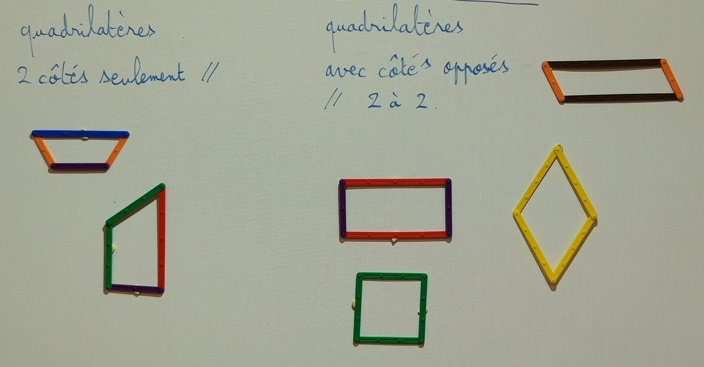 quadrilatères
2 côtés seulement //
quadrilatères
avec côtés opposés
// 2 à 2.